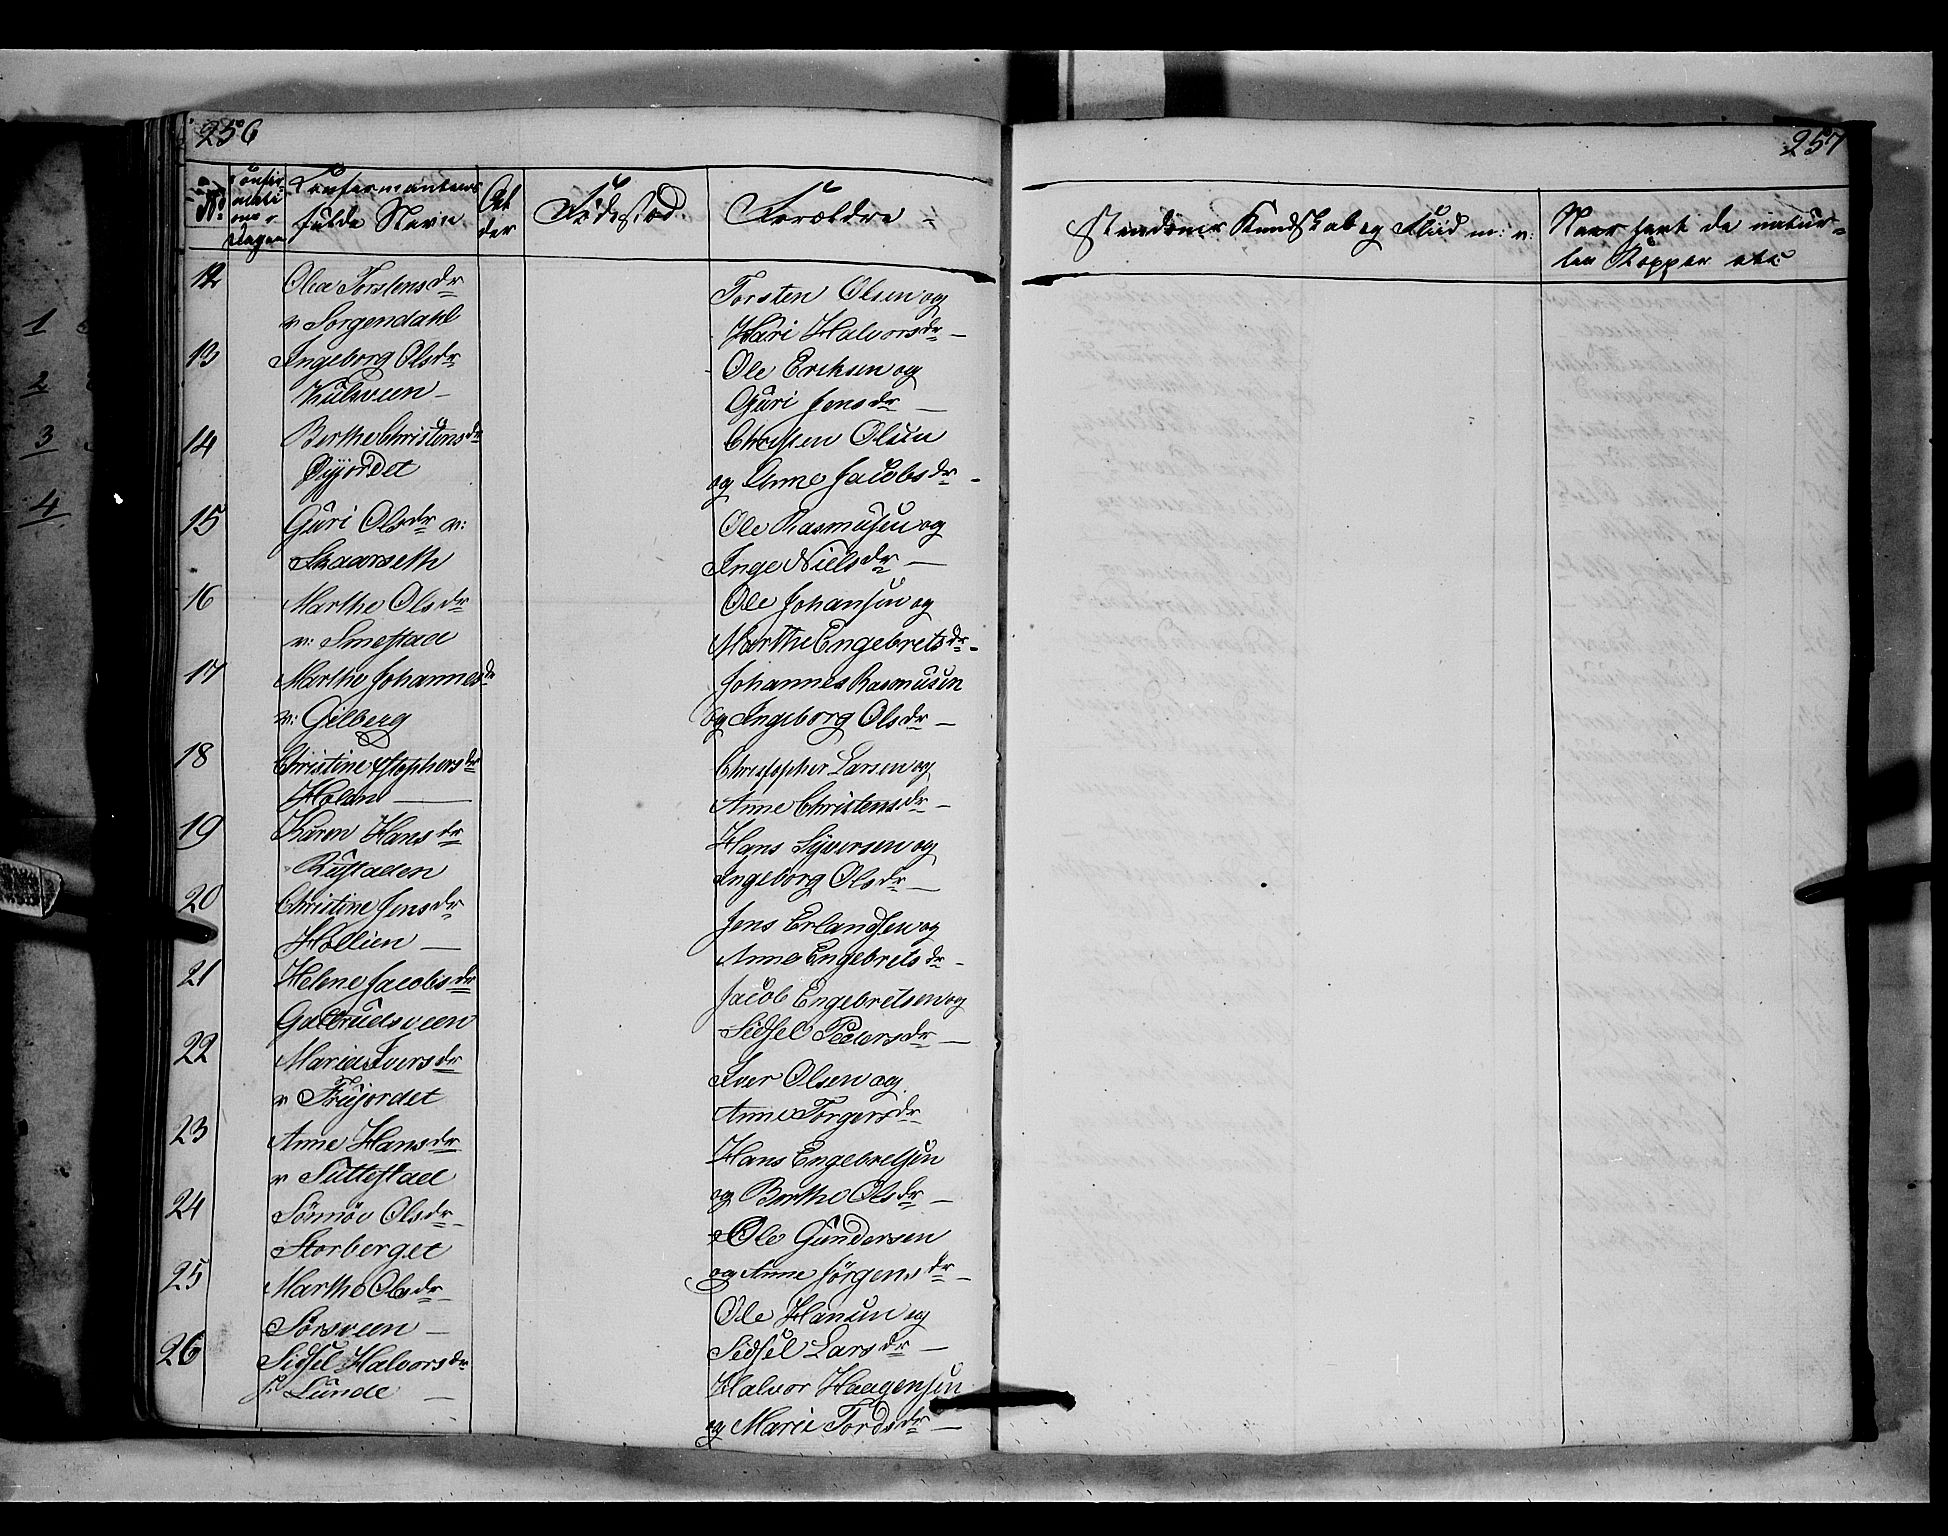 256
257
No Confir-mations-dagen
Confirmantens fulde Navn
Alder
Födestæd.
Forældre
Stændernes Kundskab og Fliid m: v:
Naar havt de naturlen Kopper etc
12 Olea Torstensdr Torsten Olsen og
v Sorgendahl Kari Halvorsdr —
13 Ingeborg Olsdr Ole Eriksen og
Kulsveen — Guri Jensdr —
14 Berthe Christensdr Christen Olsen
Øyjordet og Anne Jacobsdr -
15 Guri Olsdr v: Ole Rasmusen og
Skaarseth Inge Nielsdr —
16 Marthe Olsdr Ole Johansen og
v: Smestad Marthe Engebretsdr -
17 Marthe Johannesdr Johannes Rasmusen
v: Gilberg og Ingeborg Olsdr —
18 Christine Stophersdr Christopher Larsen og
Holen — Anne Christensdr —
19 Karen Hansdr Hans Syversen og
Rustaden Ingeborg Olsdr —
20 Christine Jensdr Jens Erlandsen og
Hollien — Anne Engebretsdr -
21 Helene Jacobsdr Jacob Engebretsen og
Galtrudsveen Sidsel Pedersdr —
22 Maria Iversdr Iver Olsen og
v Trujordet Anne Torgersdr
23 Anne Hansdr Hans Engebretsen
v Suttestad og Berthe Olsdr —
24 Sönnöv Olsdr Ole Gundersen
Storberget og Anne Jörgensdr —
25 Marthe Olsdr Ole Hansen og
Sörsveen — Sidsel Larsdr —
26 Sidsel Halvorsdr Halvor Haagensen
p: Lunde — og Marie Tordsdr —
1
2
3
4